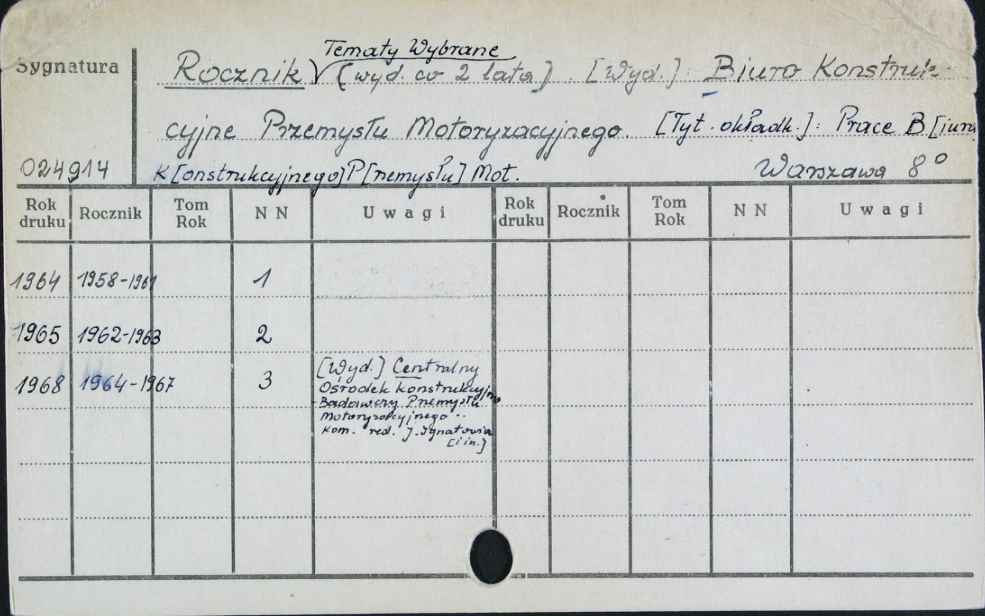 Tematy Wybrane
Sygnatura
Rocznik √ (wyd. co 2 lata). [Wyd.]: Biuro Konstruk-
cyjne Przemysłu Motoryzacyjnego. [Tyt. okładk.]: Prace B[iura
024914
K[onstrukcyjnego] P[rzemysłu] Mot. Warszawa 8°
Rok druku Rocznik Tom Rok N N Uwagi Rok druku Rocznik Tom Rok N N Uwagi
1964 1958-1961 1
1965 1962-1963 2
1968 1964-1967 3 [Wyd.] Centralny
Ośrodek Konstrukcyjno
Badawczy Przemysłu
Motoryzacyjnego..
Kom. red. J. Ignatowicz
[i in.]